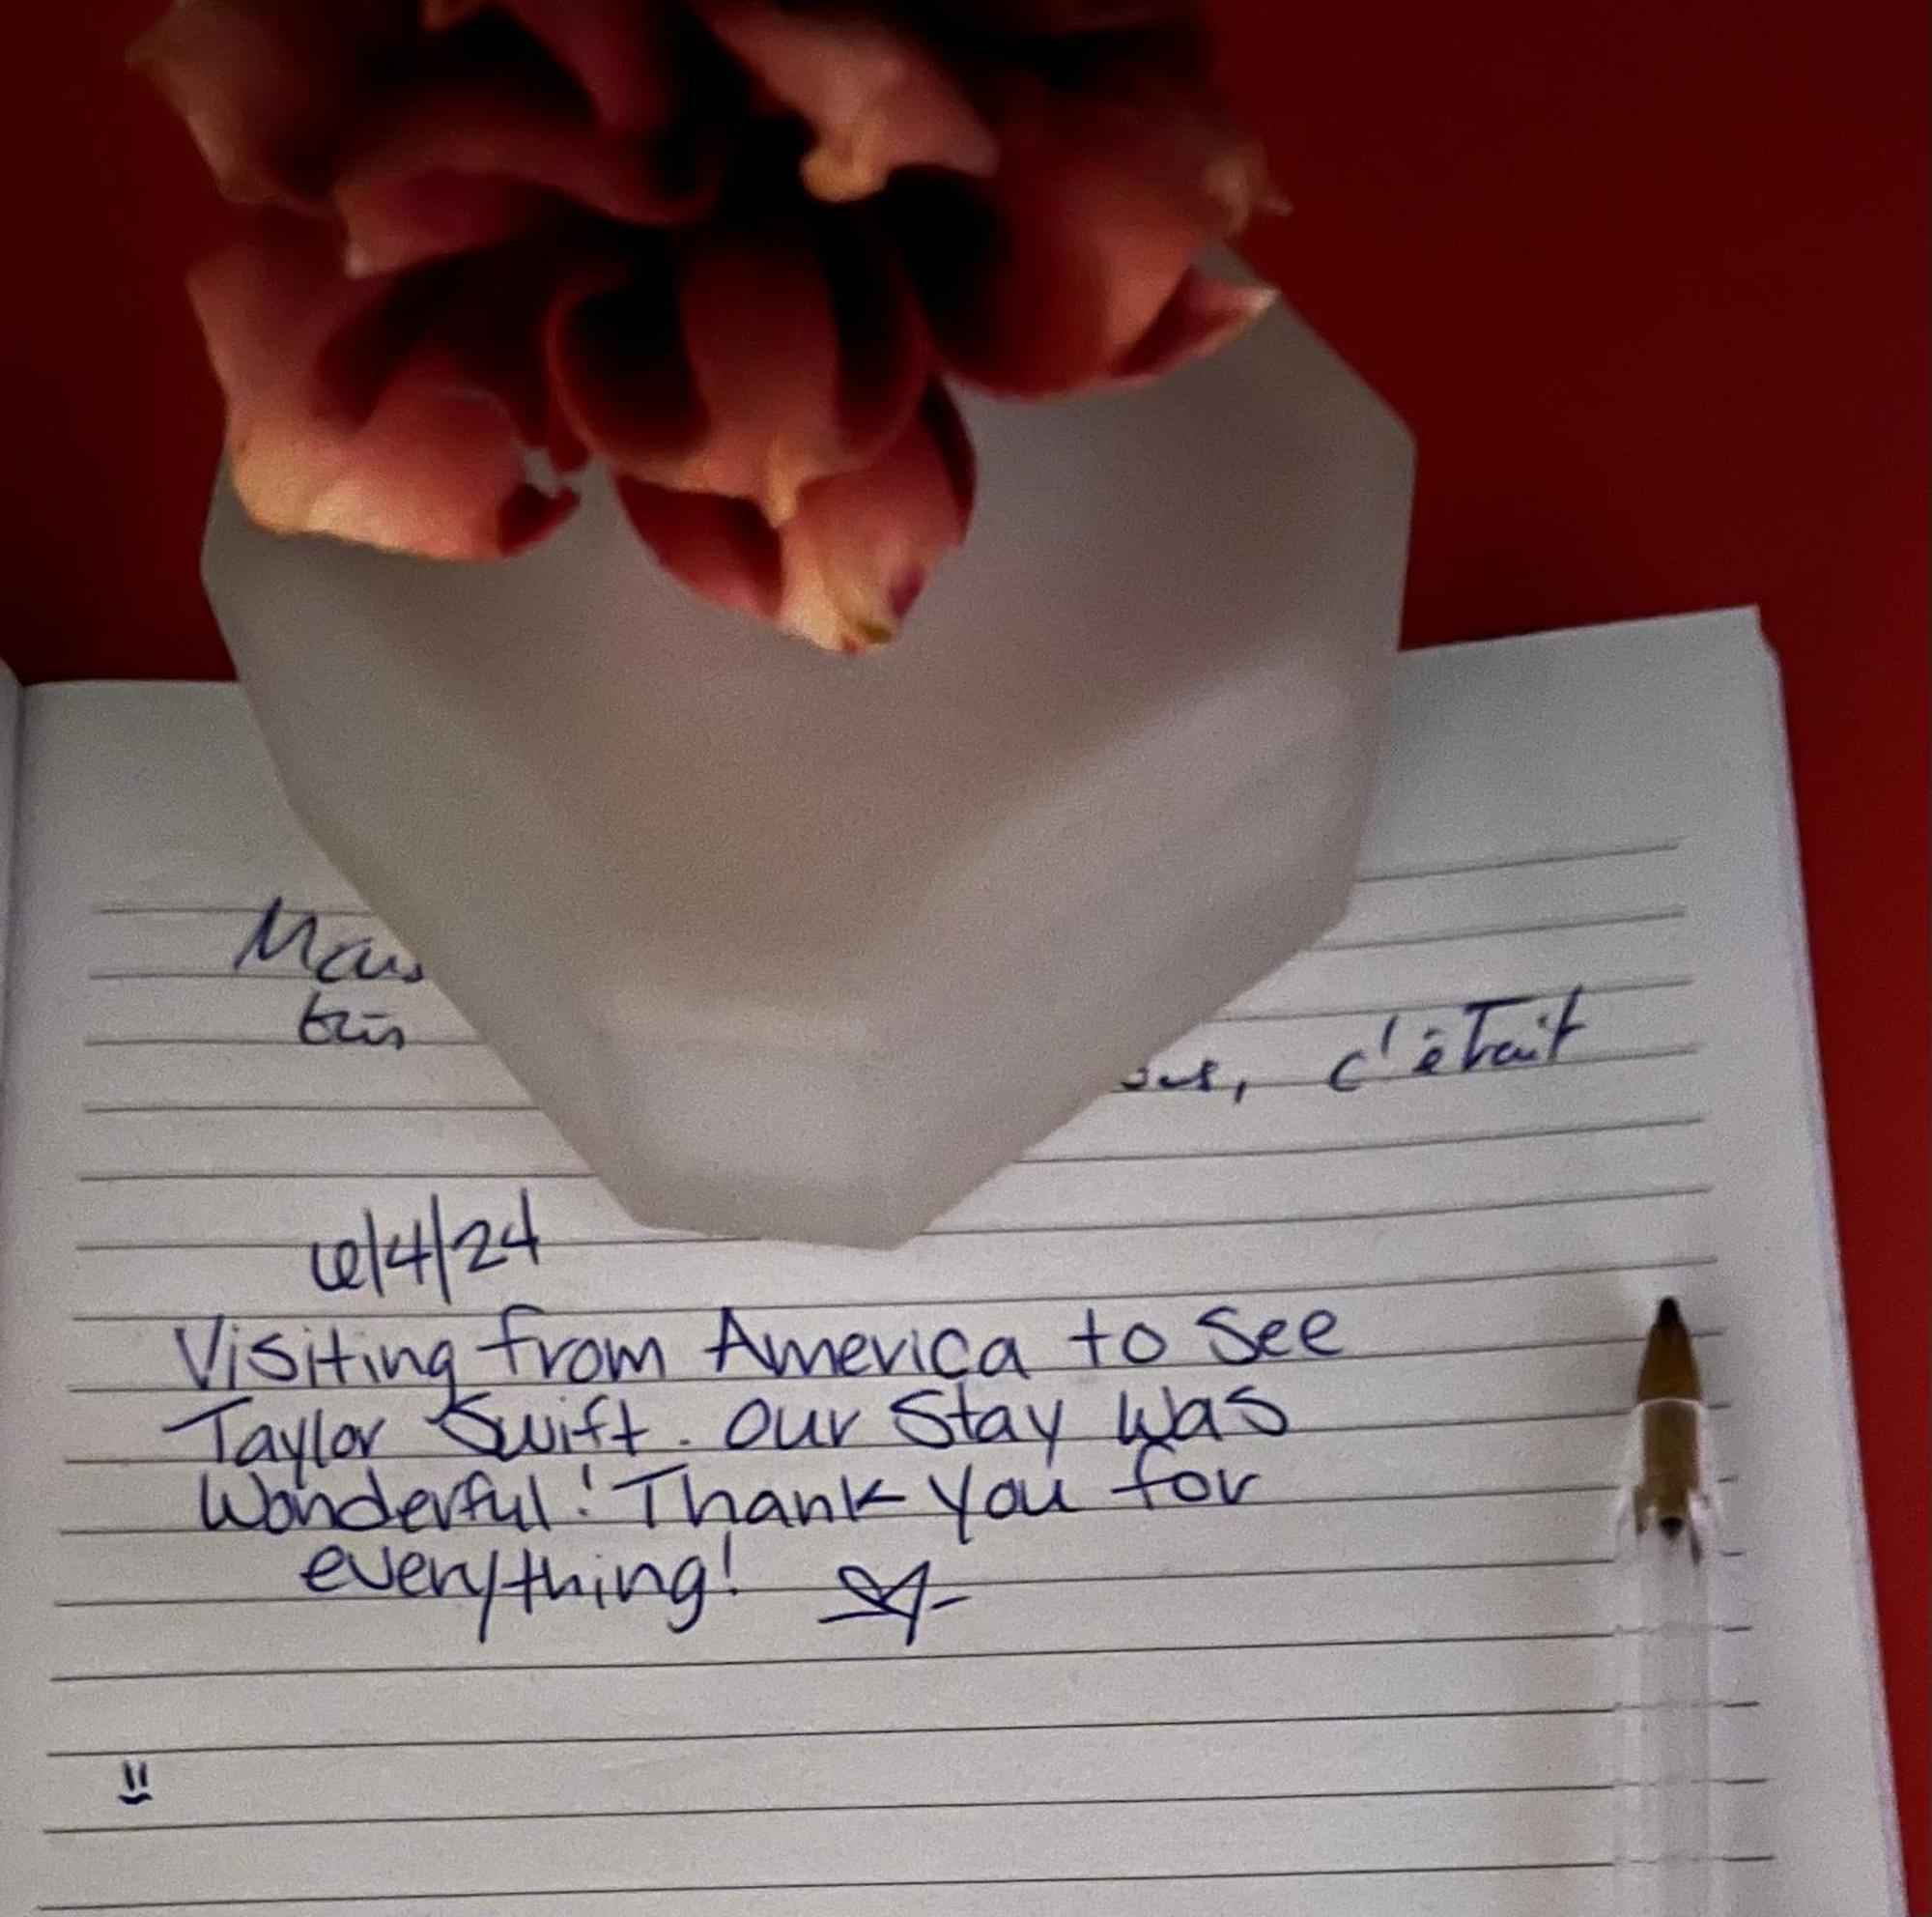 Mais
très
c'était
6/4/24
Visiting from America to See
Taylor Swift. Our Stay was
Wonderful! Thank you for
everything!